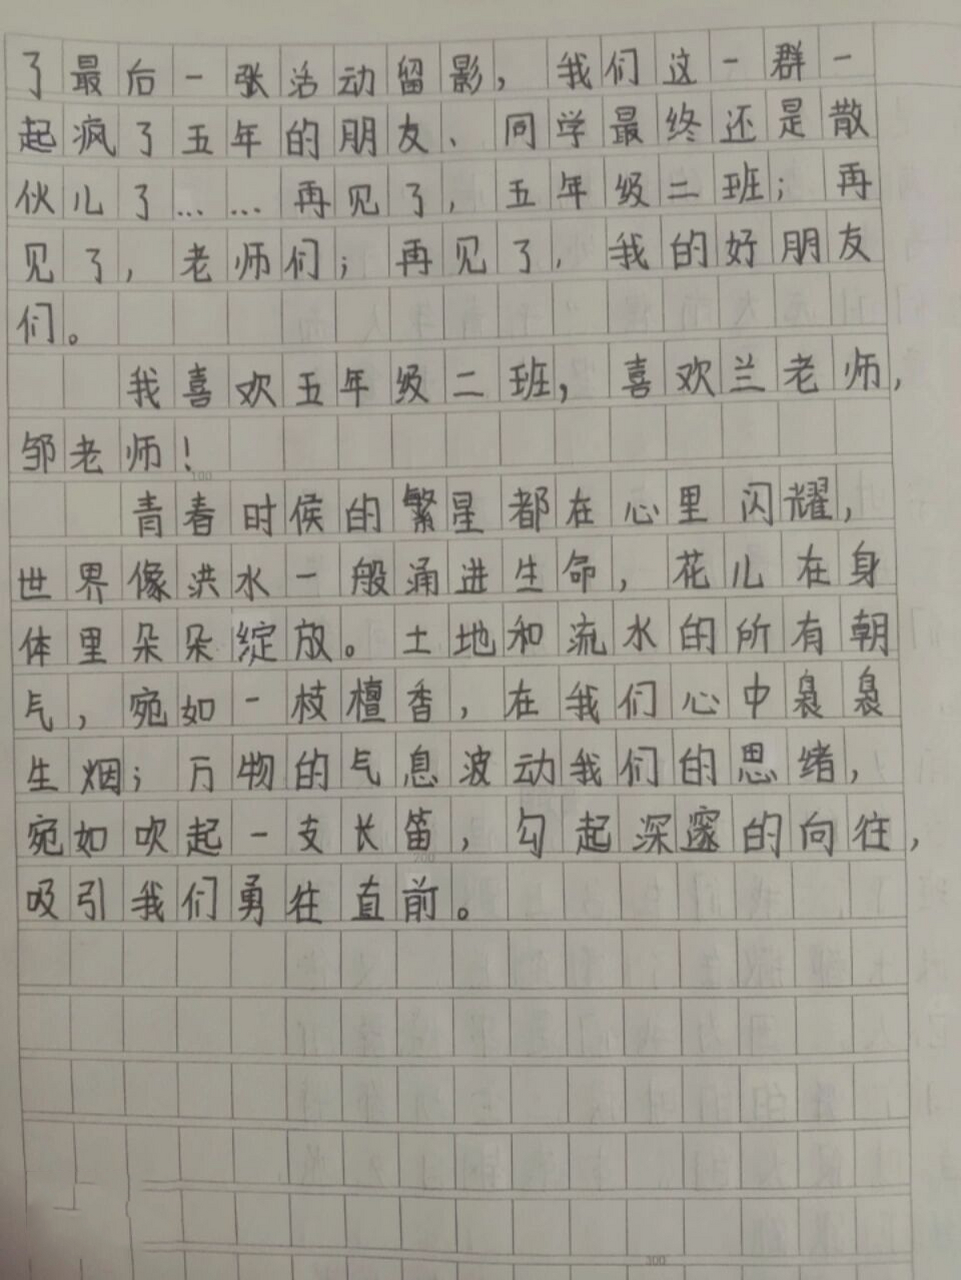 了最后一张活动留影，我们这一群一
起疯了五年的朋友、同学最终还是散
伙儿了……再见了，五年级二班；再
见了，老师们；再见了，我的好朋友
们。
我喜欢五年级二班，喜欢兰老师，
邹老师！
100
青春时候的繁星都在心里闪耀，
世界像洪水一般涌进生命，花儿在身
体里朵朵绽放。土地和流水的所有朝
气，宛如一枝檀香，在我们心中袅袅
生烟；万物的气息波动我们的思绪，
宛如吹起一支长笛，勾起深邃的向往，
200
吸引我们勇往直前。
300